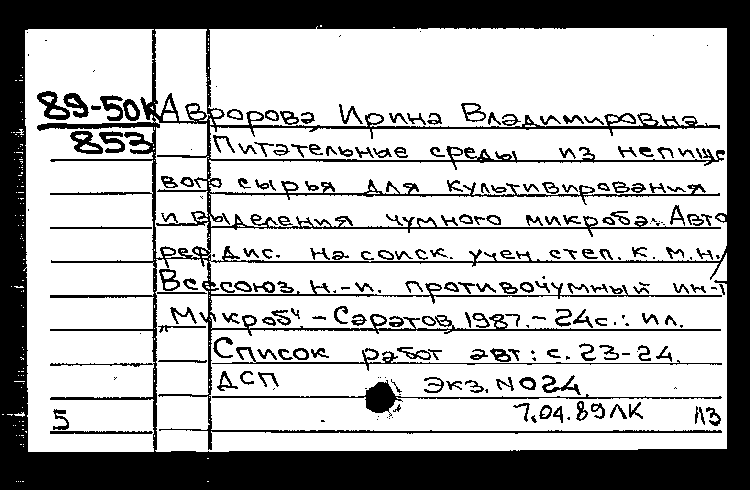 89-50к Авророва Ирина Владимировна.
853 Питательные среды из непище
вого сырья для культивирования
и выделения чумного микроба: Авто
реф. дис. на соиск. учен. степ. к. м. н. /
Всесоюз. н.-и. противочумный ин-т
„Микроб“. - Саратов, 1987. - 24с.: ил.
Список работ авт: с. 23-24.
ДСП Экз. №024.
5 7.04.89ЛК